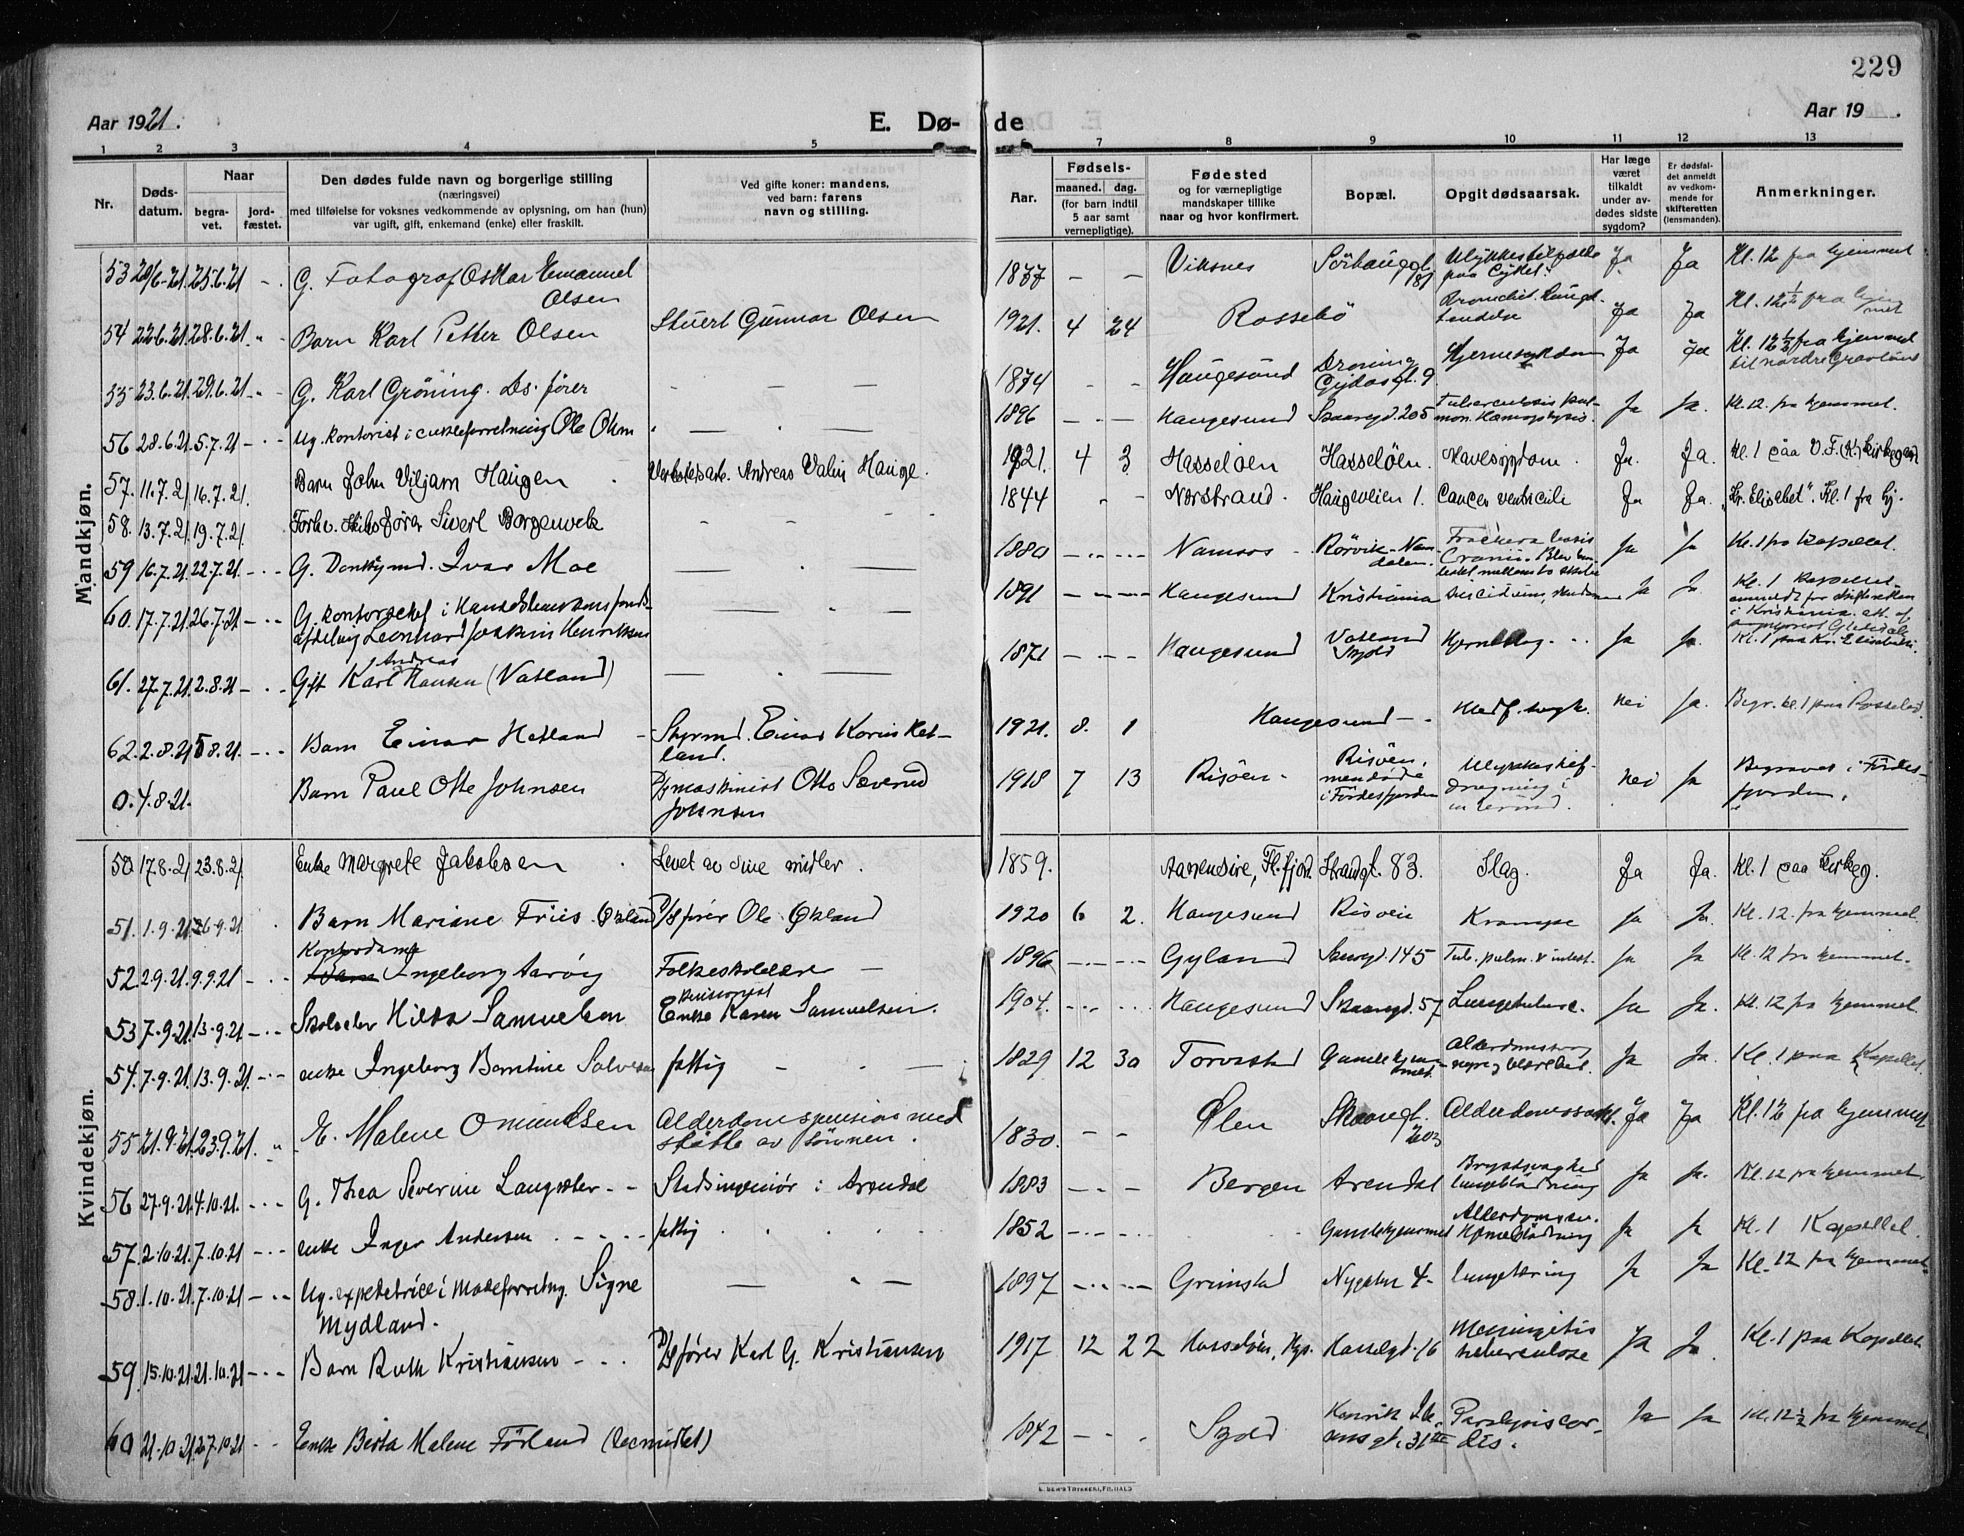 229
Aar 1921.
E. Dø-
de
Aar 19 .
1 2 3 4 5 6 7 8 9 10 11 12 13
Nr.
Døds-
datum.
Naar
begra-
vet.
jord-
fæstet.
Den dødes fulde navn og borgerlige stilling
(næringsvei)
med tilføielse for voksnes vedkommende av oplysning, om han (hun)
var ugift, gift, enkemand (enke) eller fraskilt.
Ved gifte koner: mandens,
ved barn: farens
navn og stilling.
Aar.
Fødsels-
maaned. dag.
(for barn indtil
5 aar samt
vernepligtige).
Fødested
og for værnepligtige
mandskaper tillike
naar og hvor konfirmert.
Bopæl.
Opgit dødsaarsak.
Har læge
været
tilkaldt
under av-
dødes sidste
sygdom?
Er dødsfal-
det anmeldt
av vedkom-
mende for
skifteretten
(lensmanden).
Anmerkninger.
Mandkjøn.
53 20/6-21. 25.6.21 G. Fotograf Oskar Emanuel
Olsen
1877 - - Viksnes Sørhauggt. 181 Ulykkestilfælde
paa Cykel. Ja Ja Kl. 12 fra hjemmet
54 22.6.21. 28.6.21 Barn Karl Petter Olsen Stuert Gunnar Olsen 1921. 4 24 Rossebö Bronchit. Lunge-
Ja Ja Kl. 12½ fra hjem
met
55 23.6.21. 29.6.21 G. Karl Gröning. Ds. fører 1874 - - Haugesund Dronning
Gydasgt. 9 Hjernesykdom Ja Ja Kl. 12½ fra hjemmet
til nordre Gravlund
56 28.6.21 5.7.21 Ug. kontorist i Ole Olsen 1896 Haugesund Skaaregd. 205 Tuberculosis pul-
mon. Hæmoptysis. Ja Ja. Kl. 12. fra hjemmet.
57. 11.7.21 16.7.21. Barn John Viljam Haugen Verkstedsarb. Andreas Valin Hauge. 1921. 4 3 Hasseløen Hasseløen. Mavesygdom. Ja. Ja. Kl. 1 paa V. F. (K.) Kirkegaard
58. 13.7.21 19.7.21. Forhv. Skibsfører Sivert Borgenvik 1844 Nerstrand. Haugeveien 1. Cancer ventricile Ja Ja. "Kr. Elisabet". Kl. 1 fra hj.
59 16.7.21 22.7.21. G. Donkymd. Ivar Moe 1880 Namsos Rørvik - Nam-
dalen. Cranii. Ja Ja Kl. 1 fra Kapellet.
60. 17.7.21 26.7.21 G. Kontorchef i
afdeling Leonhard Joakim Henriksen 1891 Haugesund Kristiania Suicidium, Ja Ja Kl. 1 Kapellet
anmeldt for skifteretten
i Kristiania
61. 27.7.21. 2.8.21 Gift Karl Andreas Hansen (Vatland) 1871 Haugesund Vatland
Skjold Hjerneslag. Ja Ja. Kl. 1 paa Kr. Elisabeth.
62. 2.8.21 5 8.21. Barn Einar Hetland Styrmd. Einar Het-
land. 1921. 8. 1 Haugesund Medf. svagh. Nei Ja. Begr. kl. 1 paa Rossebø.
0. 4.8.21. Barn Paul Otto Johnsen D/s maskinist Otto Sæverud
Johnsen 1918 7 13 Risøen Risöen,
men døde
i Førdesfjorden Nei Ja Begravet i Førdes-
fjorden.
Kvindekjøn.
50 17.8.21 23.8.21. Enke Margrete Jakobsen Levet av sine midler. 1859. Aasendsire, Fl. fjord. Strandgt. 83. Slag. Ja Ja. Kl. 1 paa Kirkeg.
51. 1.9.21. 26.9.21. Barn Mariane Friis Økland D/s fører Ole Økland 1920 6 2. Haugesund Risøen Krampe Ja Ja. Kl. 12. fra hjemmet.
52. 2.9.21. 9.9.21 Kontordame Ingeborg Aarög Folkeskolelærer 1896 Gyland Skaregd. 145 Tub. pulm. & intest. Ja Ja Kl. 12 fra hjemmet.
53 7.9.21 13.9.21 Skoleelev Hilda Samuelsen Enke Karen Samuelsen. 1904. Haugesund Skaaregd. 57 Lungetuberc. Ja Ja. Kl. 12 fra hjemmet.
54. 7.9.21 13.9.21. enke Ingeborg Berntine Solvesen fattig 1829 12 30 Torvestad Gamlehjem-
met. Ja Ja. Kl. 1 paa Kapellet.
55 21.9.21. 23.9.21. E. Malene Omundsen Alderdomspension med
støtte av sønnen. 1830. Ølen Skaaregt.
203 Alderdomssvakh. Ja Ja Kl. 12 fra hjemmet
56 27.9.21 4.10.21. G. Thea Severine Langsæter Stadsingeniör i Arendal 1883 Bergen Arendal Brystsvaghed
lungeblødning Ja Ja. Kl. 12 fra hjemmet
57. 2.10.21. 7.10.21 enke Inger Andersen fattig 1852 Gamlehjemmet Alderdomssv.
Hjerneblødning Ja Ja Kl. 1 Kapellet.
58. 1.10.21. 7.10.21 Ug. expeditrice i Modeforretng. Signe
Mydland. 1897 Grimstad Nygaten 4 lungetæring Ja Ja Kl. 12 fra hjemmet.
59. 15.10.21. 21.10.21 Barn Ruth Kristiansen D/s fører Karl G. Kristiansen 1917 12 22 Hasseløen, Hgs. Hasselgd. 16 Meningitis
tuberculose Ja Ja Kl. 1 paa Kapellet
60 21.10.21. 27.10.21 Enke Berta Malene Förland (leemidlet) 1842 Skjold Henrik Ib-
sens gt. 31 III Paralysis cor-
dis. Ja Ja Kl. 12½ fra hjemmet